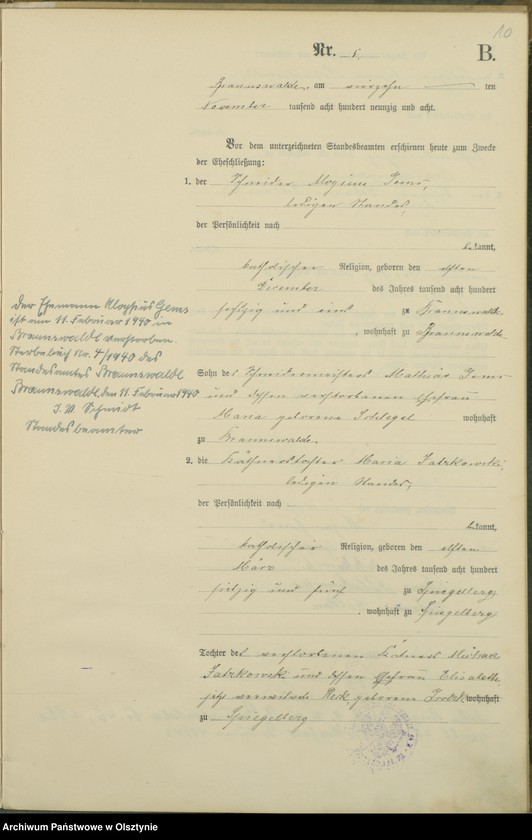 10
Nr. 5.
B.
Braunswalde, am vierzehn ten
November tausend acht hundert neunzig und acht.
Vor dem unterzeichneten Standesbeamten erschienen heute zum Zwecke
der Eheschließung:
1. der Schneider Aloysius Gems,
ledigen Standes,
der Persönlichkeit nach
bekannt,
katholischer Religion, geboren den elften
Dezember des Jahres tausend acht hundert
sechzig und eins zu Braunswalde
, wohnhaft zu Braunswalde
Der Ehemann Aloysius Gems
ist am 11. Februar 1940 in
Braunswalde verstorben.
Sterbebuch Nr. 4/1940 des
Standesamtes Braunswalde
Braunswalde, den 11. Februar 1940
J. V. Schmidt
Standesbeamter
Sohn des Schneidermeisters Mathias Gems
und dessen verstorbenen Ehefrau
Maria geborene Schlegel wohnhaft
zu Braunswalde.
2. die Käthnertochter Maria
ledigen Standes,
der Persönlichkeit nach
bekannt,
katholischer Religion, geboren den elften
März des Jahres tausend acht hundert
siebzig und fünf zu Spiegelberg
, wohnhaft zu Spiegelberg
Tochter des verstorbenen Kätners
und dessen Ehefrau Elisabeth
jetzt verwitwete geborene wohnhaft
zu Spiegelberg
Archiwum Państwowe w Olsztynie